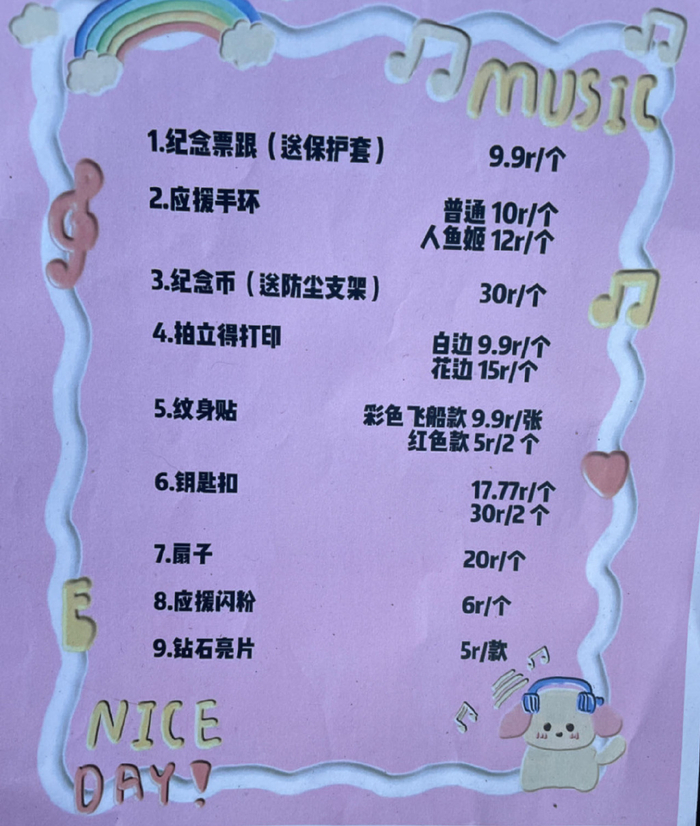 MUSIC
1.纪念票跟（送保护套） 9.9r/个
2.应援手环 普通 10r/个
人鱼姬 12r/个
3.纪念币（送防尘支架） 30r/个
4.拍立得打印 白边 9.9r/个
花边 15r/个
5.纹身贴 彩色飞船款 9.9r/张
红色款 5r/2 个
6.钥匙扣 17.77r/个
30r/2 个
7.扇子 20r/个
8.应援闪粉 6r/个
9.钻石亮片 5r/款
NICE
DAY!